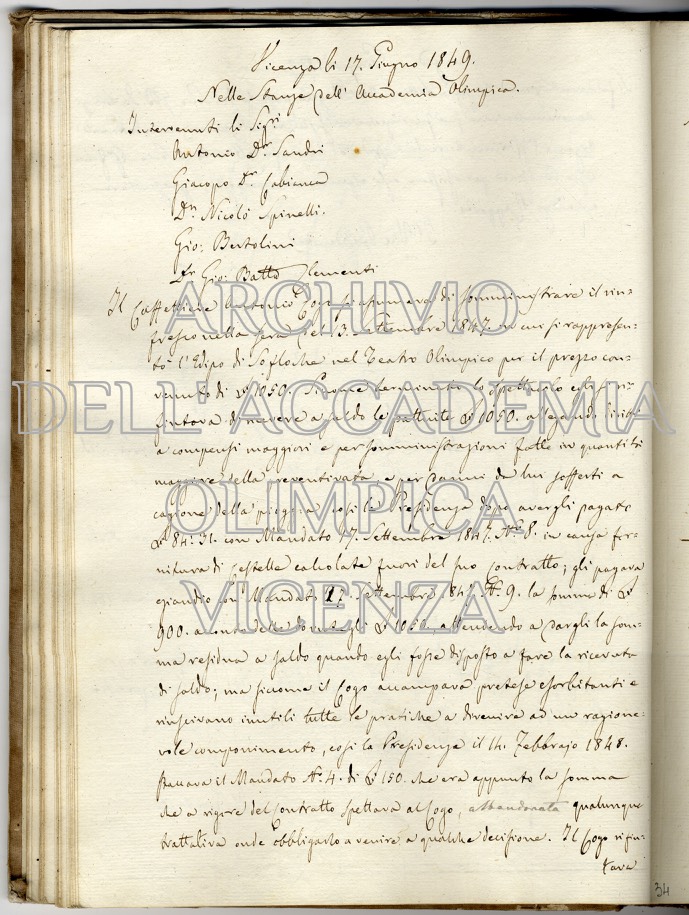 Vicenza li 17. Giugno 1849.
Nelle Stanze dell' Accademia Olimpica.
Intervenuti li Sigri
Antonio Dr Sandri
Giacopo Dr Cabianca
Dn Nicolò Spinelli.
Gio: Bertolini
Dr Gio: Batta Clementi
Il Caffettiere Antonio Cogo si assumeva di somministrare il rin=
fresco nella sera del 3. Settembre 1847. in cui si rappresen=
tò l'Edipo di Sofocle nel Teatro Olimpico per il prezzo con=
venuto di 1050. Siccome terminato lo spettacolo egli si ri=
fiutava di ricevere a saldo le pattuite 1050. allegando diritti
a compensi maggiori e per somministrazioni fatte in quantità
maggiore della preventivata e per danni da lui sofferti a
cagione della pioggia così la Presidenza dopo avergli pagate
84:31. con Mandato 17. Settembre 1847. No 8. in causa for=
nitura di calcolate fuori del suo contratto; gli pagava
eziandio con Mandato Settembre No 9. la somma di
900. a conto delle dovutegli attendendo a dargli la som=
ma residua a saldo quando egli fosse disposto a fare la ricevuta
di saldo; ma siccome il Cogo accampava pretese esorbitanti e
riuscivano inutili tutte le pratiche a divenire ad un ragione=
vole componimento, così la Presidenza il 14. Febbrajo 1848.
staccava il Mandato No. 4. di 150. che era appunto la somma
che a rigore del Contratto spettava al Cogo, abbandonata qualunque
trattativa onde obbligarlo a venire a qualche decisione. Il Cogo rifiu=
tava
34
ARCHIVIO
DELL'ACCADEMIA
OLIMPICA
VICENZA